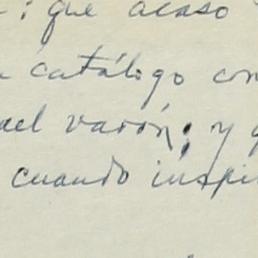 : que acaso
catálogo con
del varón; y q
cuando inspi